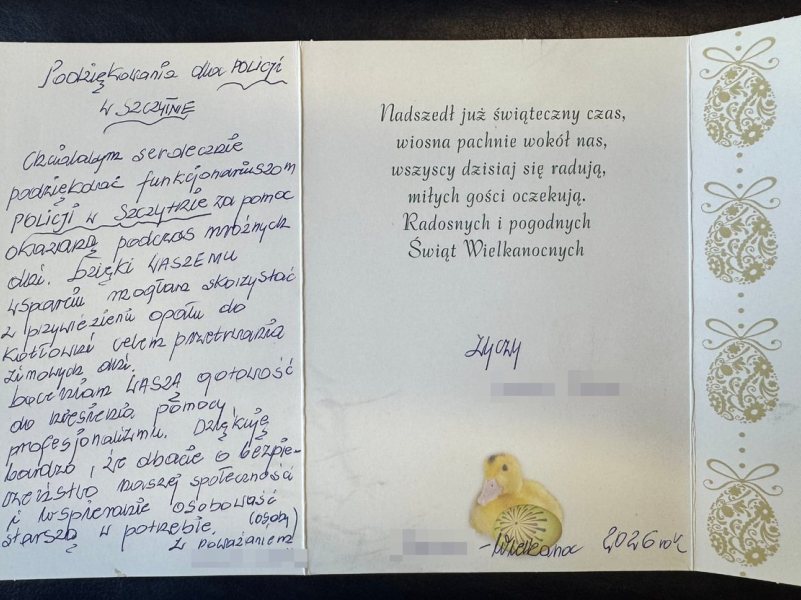 Podziękowania dla POLICJI
W SZCZYTNIE
Chciałabym serdecznie
podziękować funkcjonariuszom
POLICJI w SZCZYTNIE za pomoc
okazaną podczas mroźnych
dni. Dzięki WASZEMU
wsparciu mogłam skorzystać
z przywiezienia opału do
kotłowni celem przetrwania
zimowych dni.
Doceniam WASZĄ gotowość
do niesienia pomocy
profesjonalizmu. Dziękuję
bardzo, że dbacie o bezpie-
czeństwo naszej społeczność
i wspieranie osobowość
starszą w potrzebie. (osoby)
Z poważaniem
Nadszedł już świąteczny czas,
wiosna pachnie wokół nas,
wszyscy dzisiaj się radują,
miłych gości oczekują.
Radosnych i pogodnych
Świąt Wielkanocnych
życzy
-Wielkanoc 2026 rok